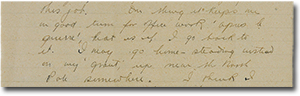 this job. One thing it keeps me
in good trim for office work 'apres la
guerre', that is if I go back to
it. I may go home-steading instead
on my 'grant', up near the North
Pole somewhere. I think I